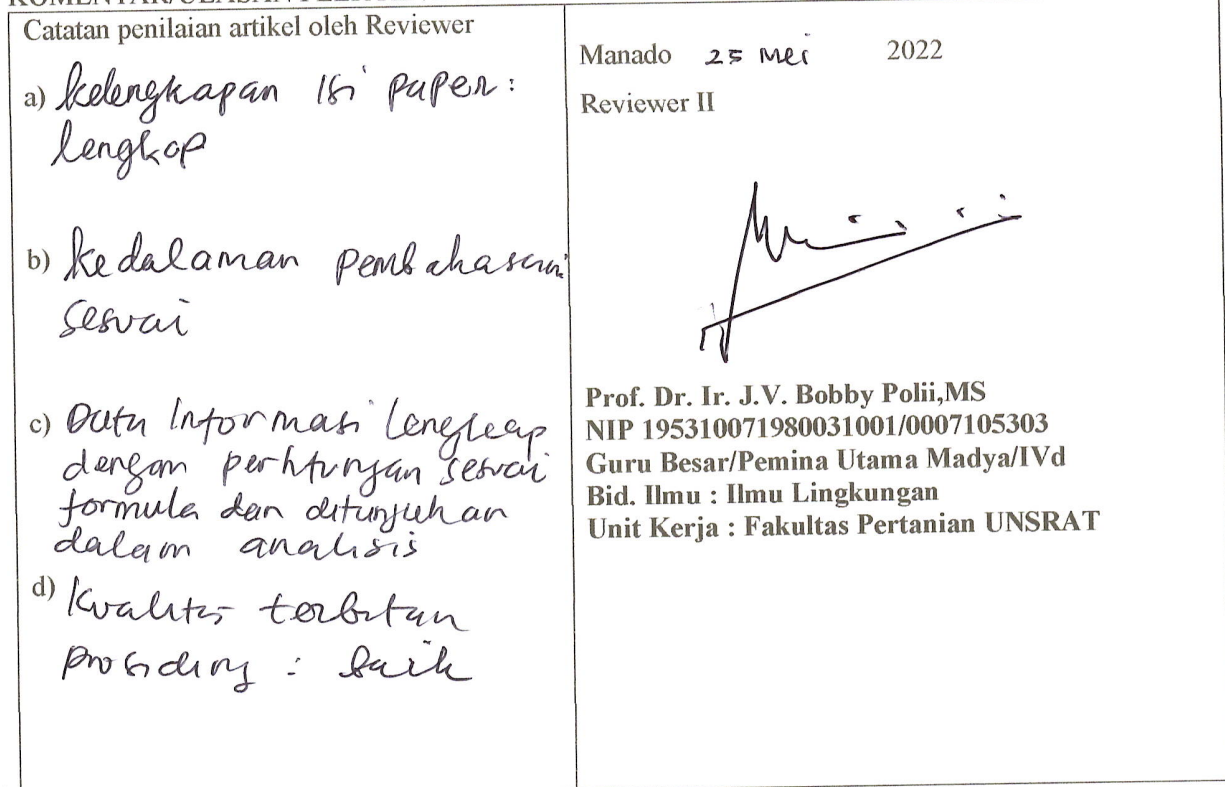 Catatan penilaian artikel oleh Reviewer
a) Kelengkapan Isi paper :
lengkap
b) Kedalaman pembahasan
sesuai
c) Data Informasi lengkap
dengan perhitungan sesuai
formula dan ditunjukan
dalam analisis
d) Kualitas terbitan
prosiding : baik
Manado 25 Mei 2022
Reviewer II
Prof. Dr. Ir. J.V. Bobby Polii,MS
NIP 195310071980031001/0007105303
Guru Besar/Pemina Utama Madya/IVd
Bid. Ilmu : Ilmu Lingkungan
Unit Kerja : Fakultas Pertanian UNSRAT